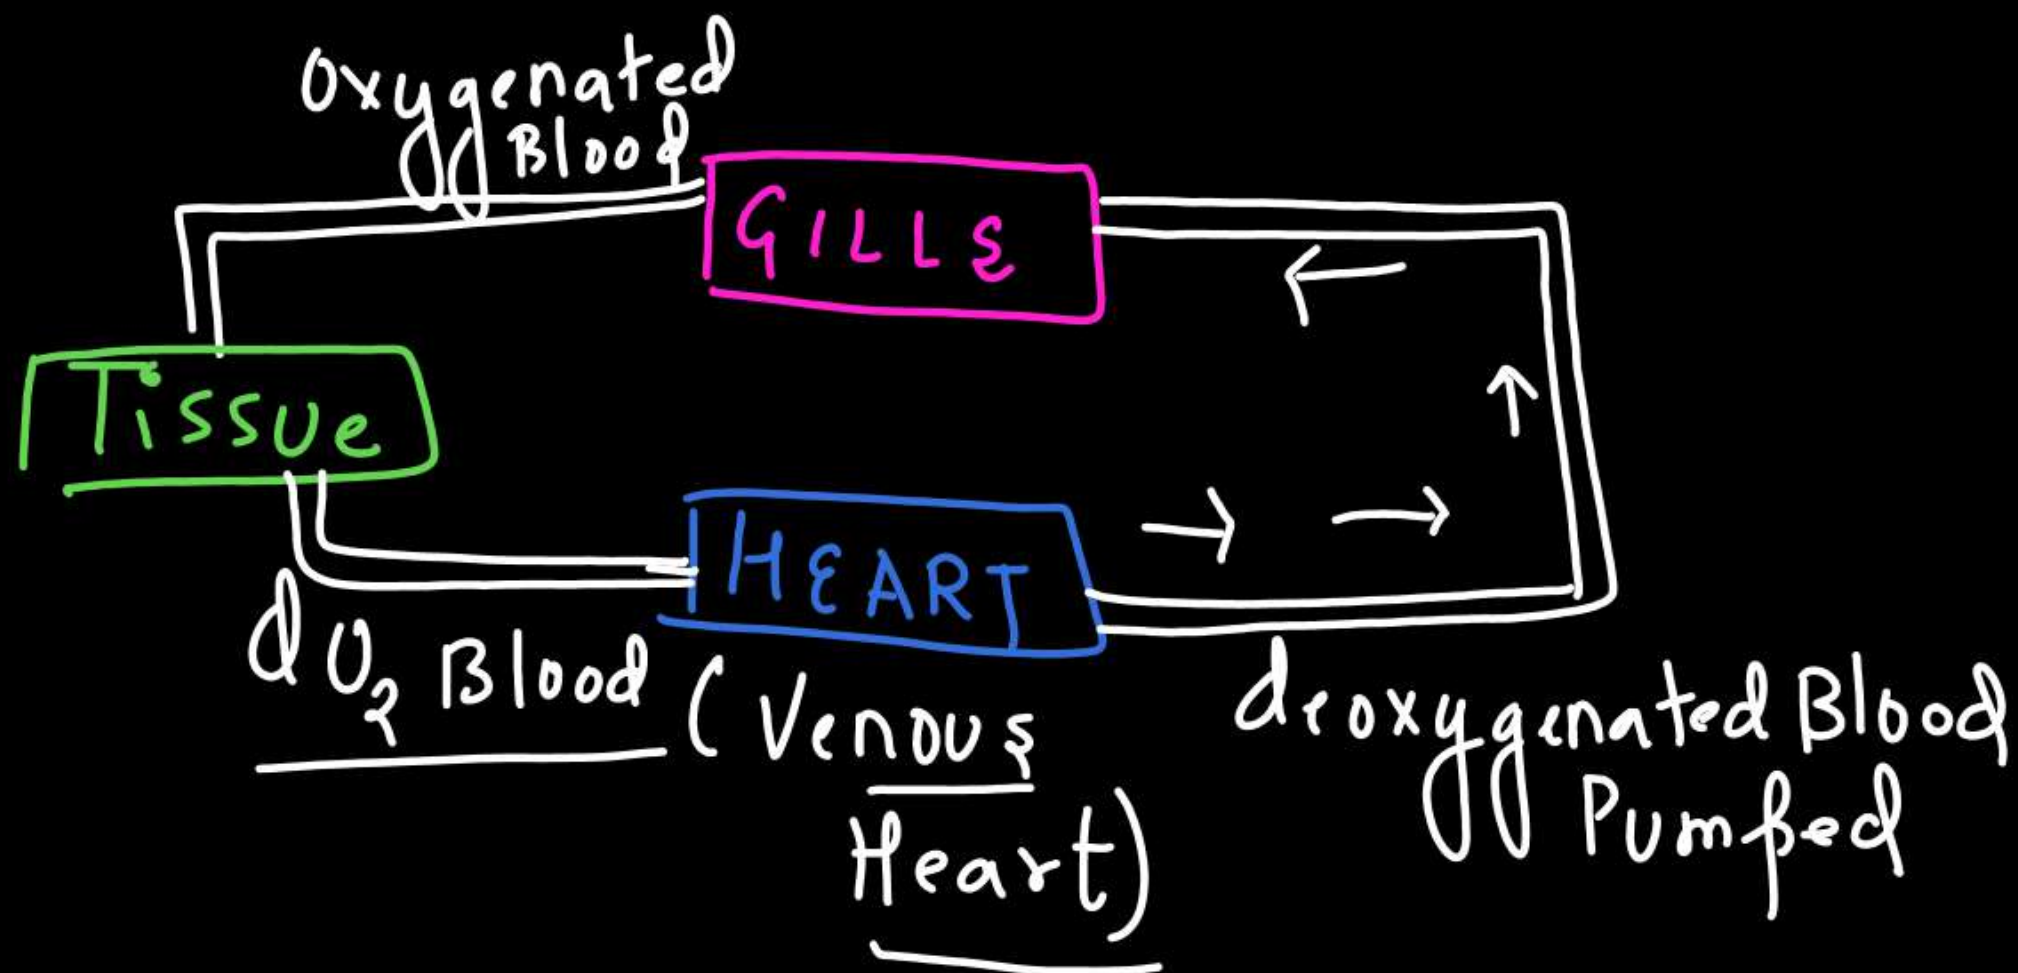 Oxygenated
Blood
GILLS
Tissue
HEART
dO₂ Blood
(Venous
Heart)
deoxygenated Blood
Pumped